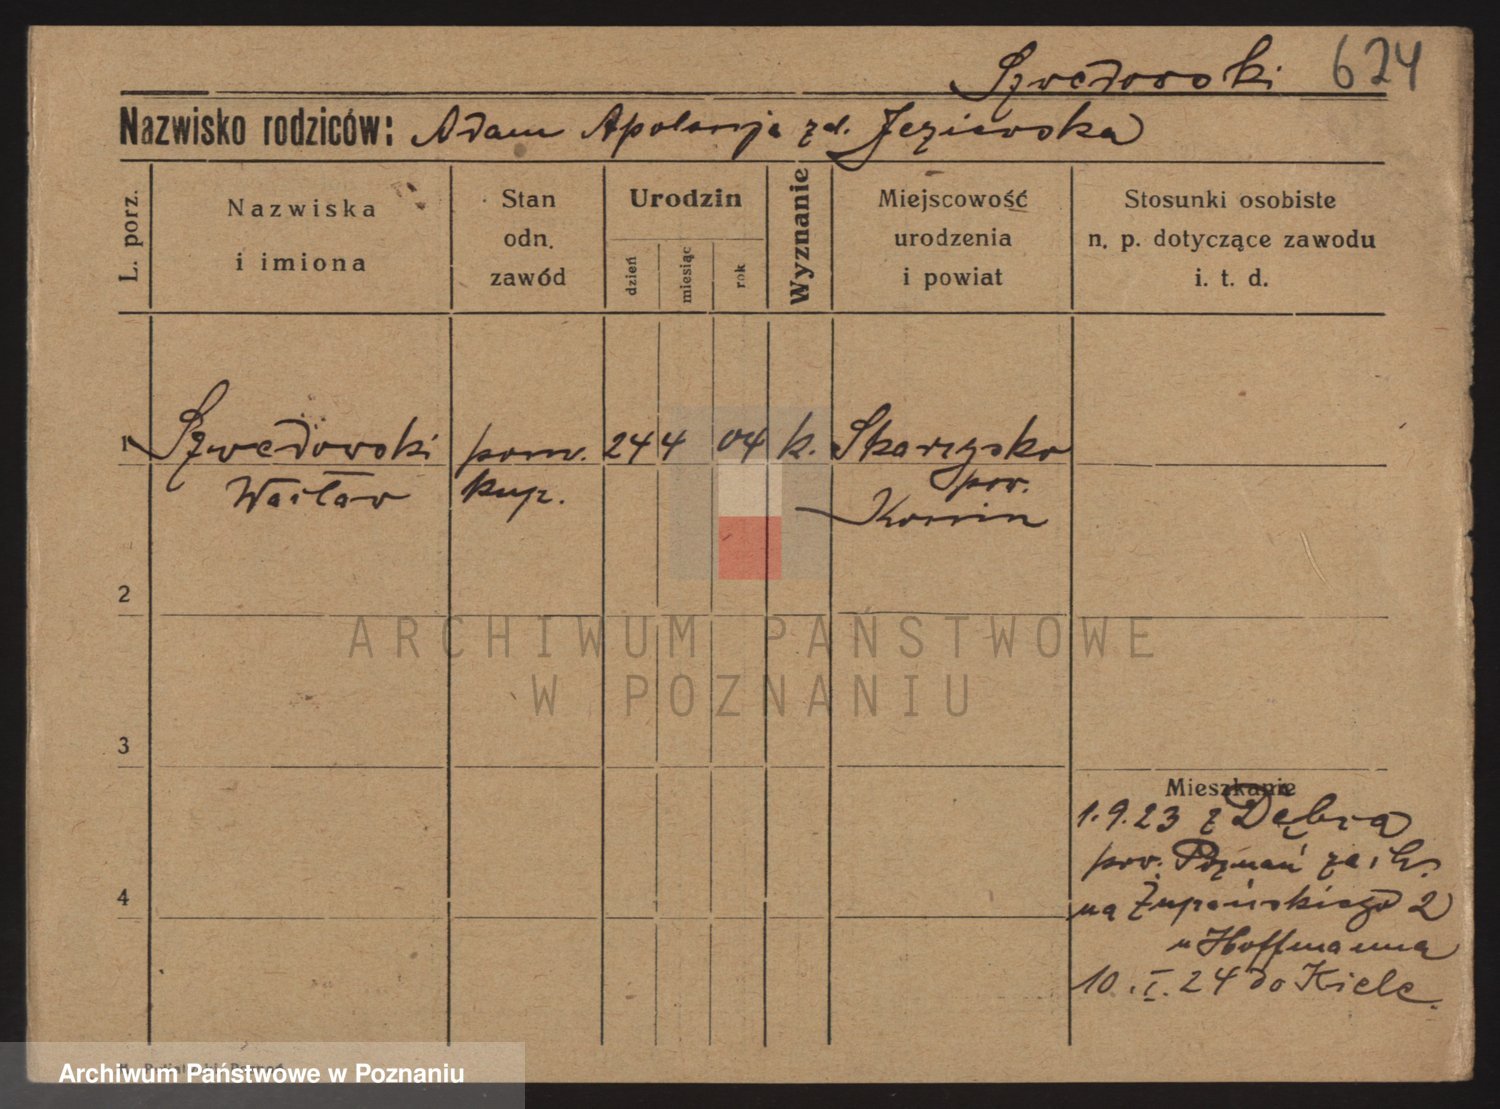 Szwedowski 624
Nazwisko rodziców: Adam Apolonja zd. Jeziewska
L. porz.
Nazwiska
i imiona
Stan
odn.
zawód
Urodzin
dzień
miesiąc
rok
Wyznanie
Miejscowość
urodzenia
i powiat
Stosunki osobiste
n. p. dotyczące zawodu
i. t. d.
1 Szwedowski pom. 24 4 04 k. Skarzysko
Wacław kup. pow.
Konin
2
3
4
Mieszkanie
1.9.23 z Dębca
pow. Poznań
na Żupańskiego 2
u Hoffmanna
10.I.24 do Kielc.
ARCHIWUM PAŃSTWOWE
W POZNANIU
Archiwum Państwowe w Poznaniu